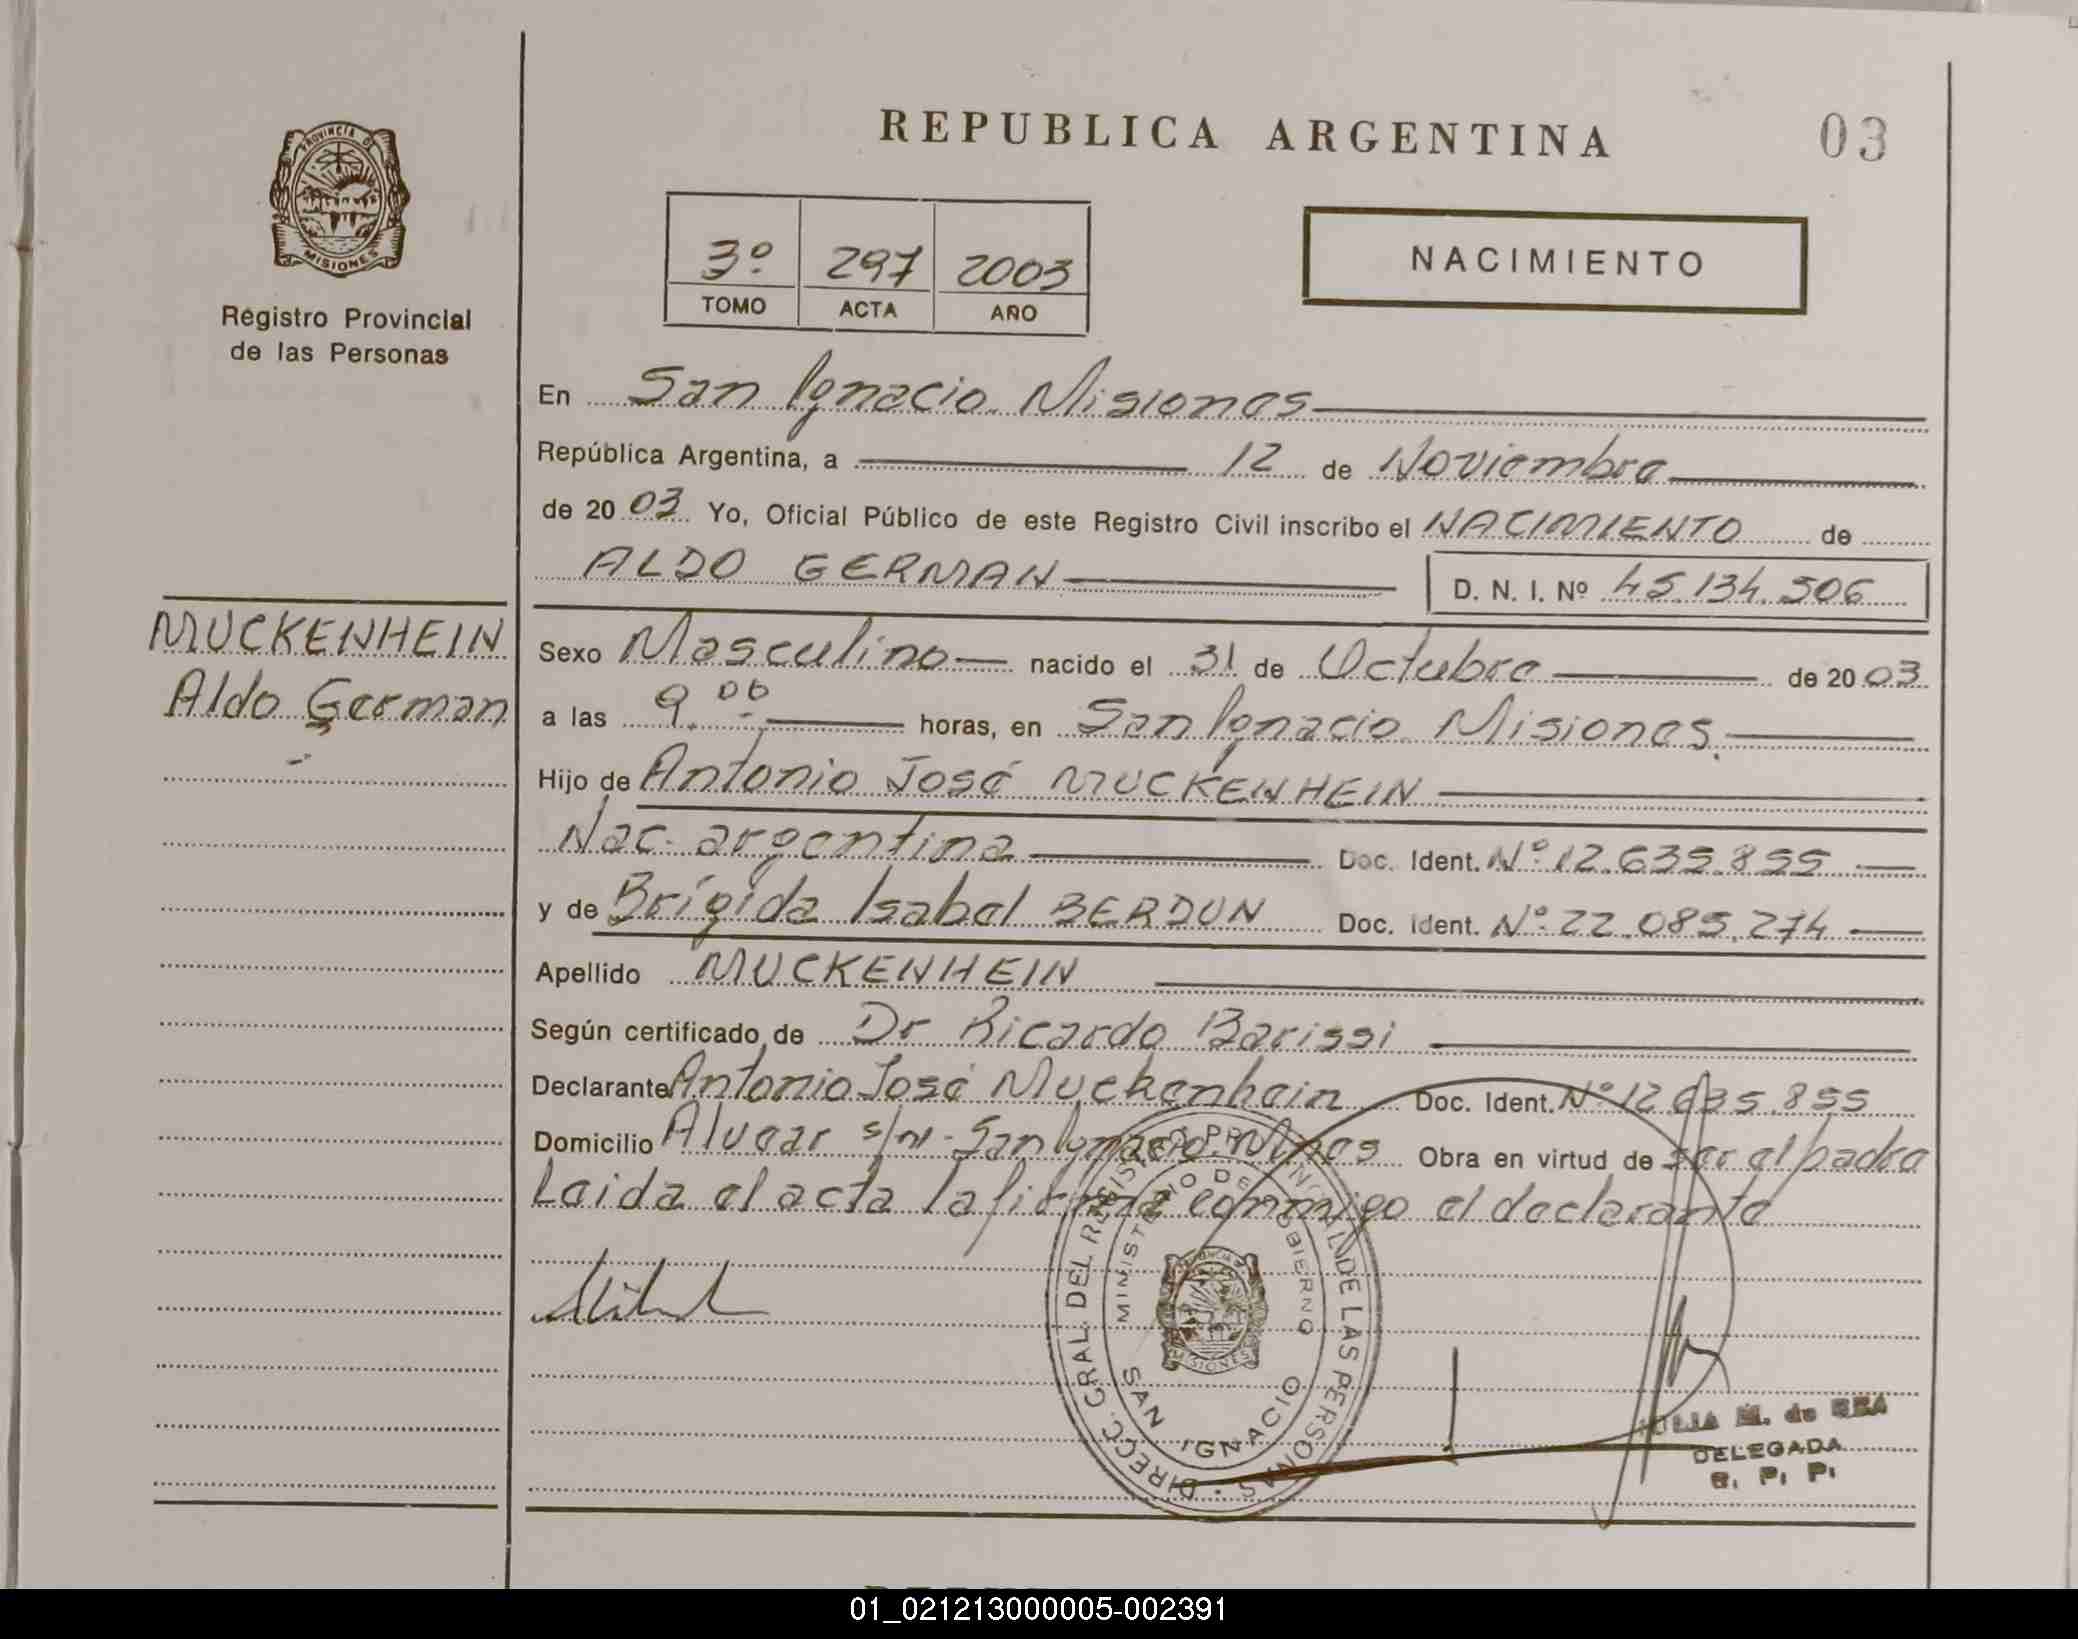 REPUBLICA ARGENTINA
03
PROVINCIA DE
MISIONES
Registro Provincial
de las Personas
3º 297 2003
TOMO ACTA AÑO
NACIMIENTO
En San Ignacio. Misiones
República Argentina, a 12 de Noviembre
de 2003 Yo, Oficial Público de este Registro Civil inscribo el NACIMIENTO de
ALDO GERMAN D. N. I. Nº 45.134.506
MUCKENHEIN
Aldo German
Sexo Masculino nacido el 31 de Octubre de 2003
a las 9.00 horas, en San Ignacio. Misiones.
Hijo de Antonio José MUCKENHEIN
Nac. argentina Doc. Ident. Nº 12.635.855
y de Brígida Isabel BERDUN Doc. Ident. Nº 22.085.274
Apellido MUCKENHEIN
Según certificado de Dr Ricardo Barissi
Declarante Antonio José Muckenhein Doc. Ident. Nº 12.635.855
Domicilio Alvear s/nº - San Ignacio. Mnes Obra en virtud de ser el padre
Leida el acta la firma conmigo el declarante
DIRECC. GRAL. DEL REGISTRO PROVINCIAL DE LAS PERSONAS
MINISTERIO DE GOBIERNO
MISIONES
SAN IGNACIO
JULIA M. de REA
DELEGADA
R. P. P.
01_021213000005-002391